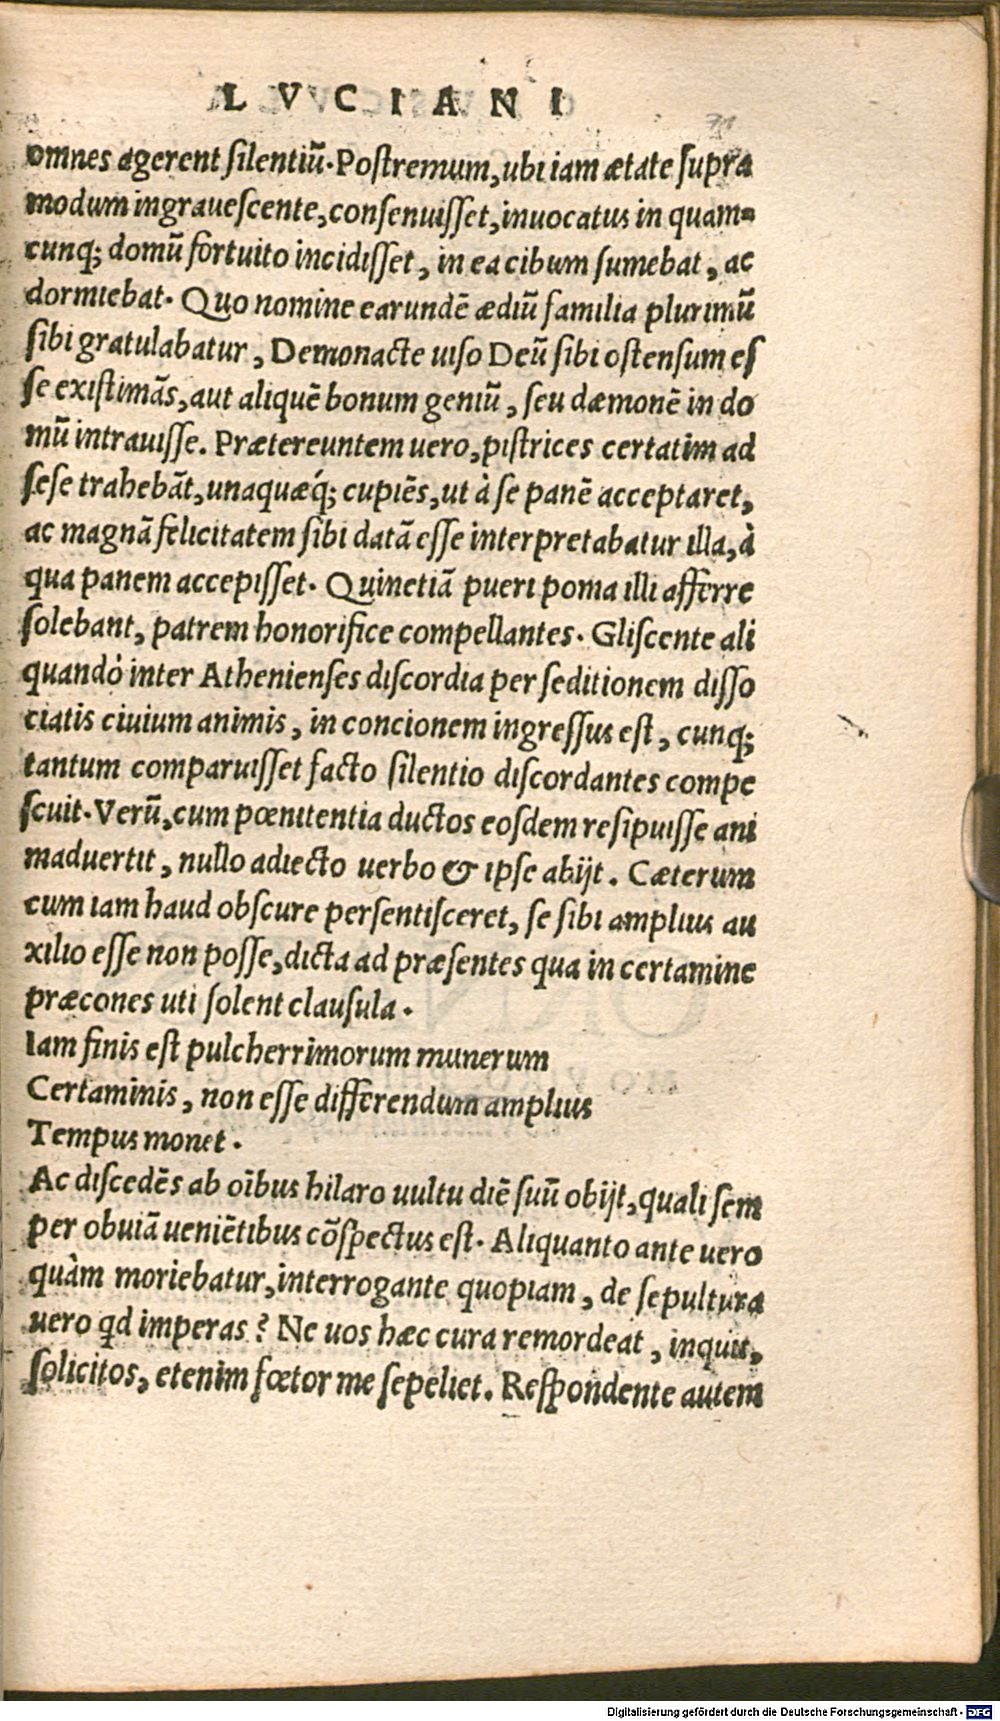 LVCIANI
71
omnes agerent ſilentiũ. Poſtremum, ubi iam ætate ſupra
modum ingraueſcente, conſenuiſſet, inuocatus in quam-
cunq; domũ fortuito incidiſſet, in ea cibum ſumebat, ac
dormiebat. Quo nomine earundẽ ædiũ familia plurimũ
ſibi gratulabatur, Demonacte uiſo Deũ ſibi oſtenſum eſ
ſe exiſtimãs, aut aliquẽ bonum geniũ, ſeu dæmonẽ in do
mũ intrauiſſe. Prætereuntem uero, piſtrices certatim ad
ſeſe trahebãt, unaquæq́; cupiẽs, ut à ſe panẽ acceptaret,
ac magnã felicitatem ſibi datã eſſe interpretabatur illa, à
qua panem accepiſſet. Quinetiã pueri poma illi afferre
ſolebant, patrem honorifice compellantes. Gliſcente ali
quandò inter Athenienſes diſcordia per ſeditionem diſſo
ciatis ciuium animis, in concionem ingreſſus eſt, cunq;
tantum comparuiſſet facto ſilentio diſcordantes compe
ſcuit. Verũ, cum pœnitentia ductos eoſdem reſipuiſſe ani
maduertit, nullo adiecto uerbo & ipſe abijt. Cæterum
cum iam haud obſcure perſentiſceret, ſe ſibi amplius au
xilio eſſe non poſſe, dicta ad præſentes qua in certamine
præcones uti ſolent clauſula.
Iam finis eſt pulcherrimorum munerum
Certaminis, non eſſe differendum amplius
Tempus monet.
Ac diſcedẽs ab oĩbus hilaro uultu diẽ ſuũ obijt, quali ſem
per obuiã ueniẽtibus cõſpectus eſt. Aliquanto ante uero
quàm moriebatur, interrogante quopiam, de ſepultura
uero qd imperas? Ne uos hæc cura remordeat, inquit,
ſolicitos, etenim fœtor me ſepeliet. Reſpondente autem
Digitalisierung gefördert durch die Deutsche Forschungsgemeinschaft - DFG